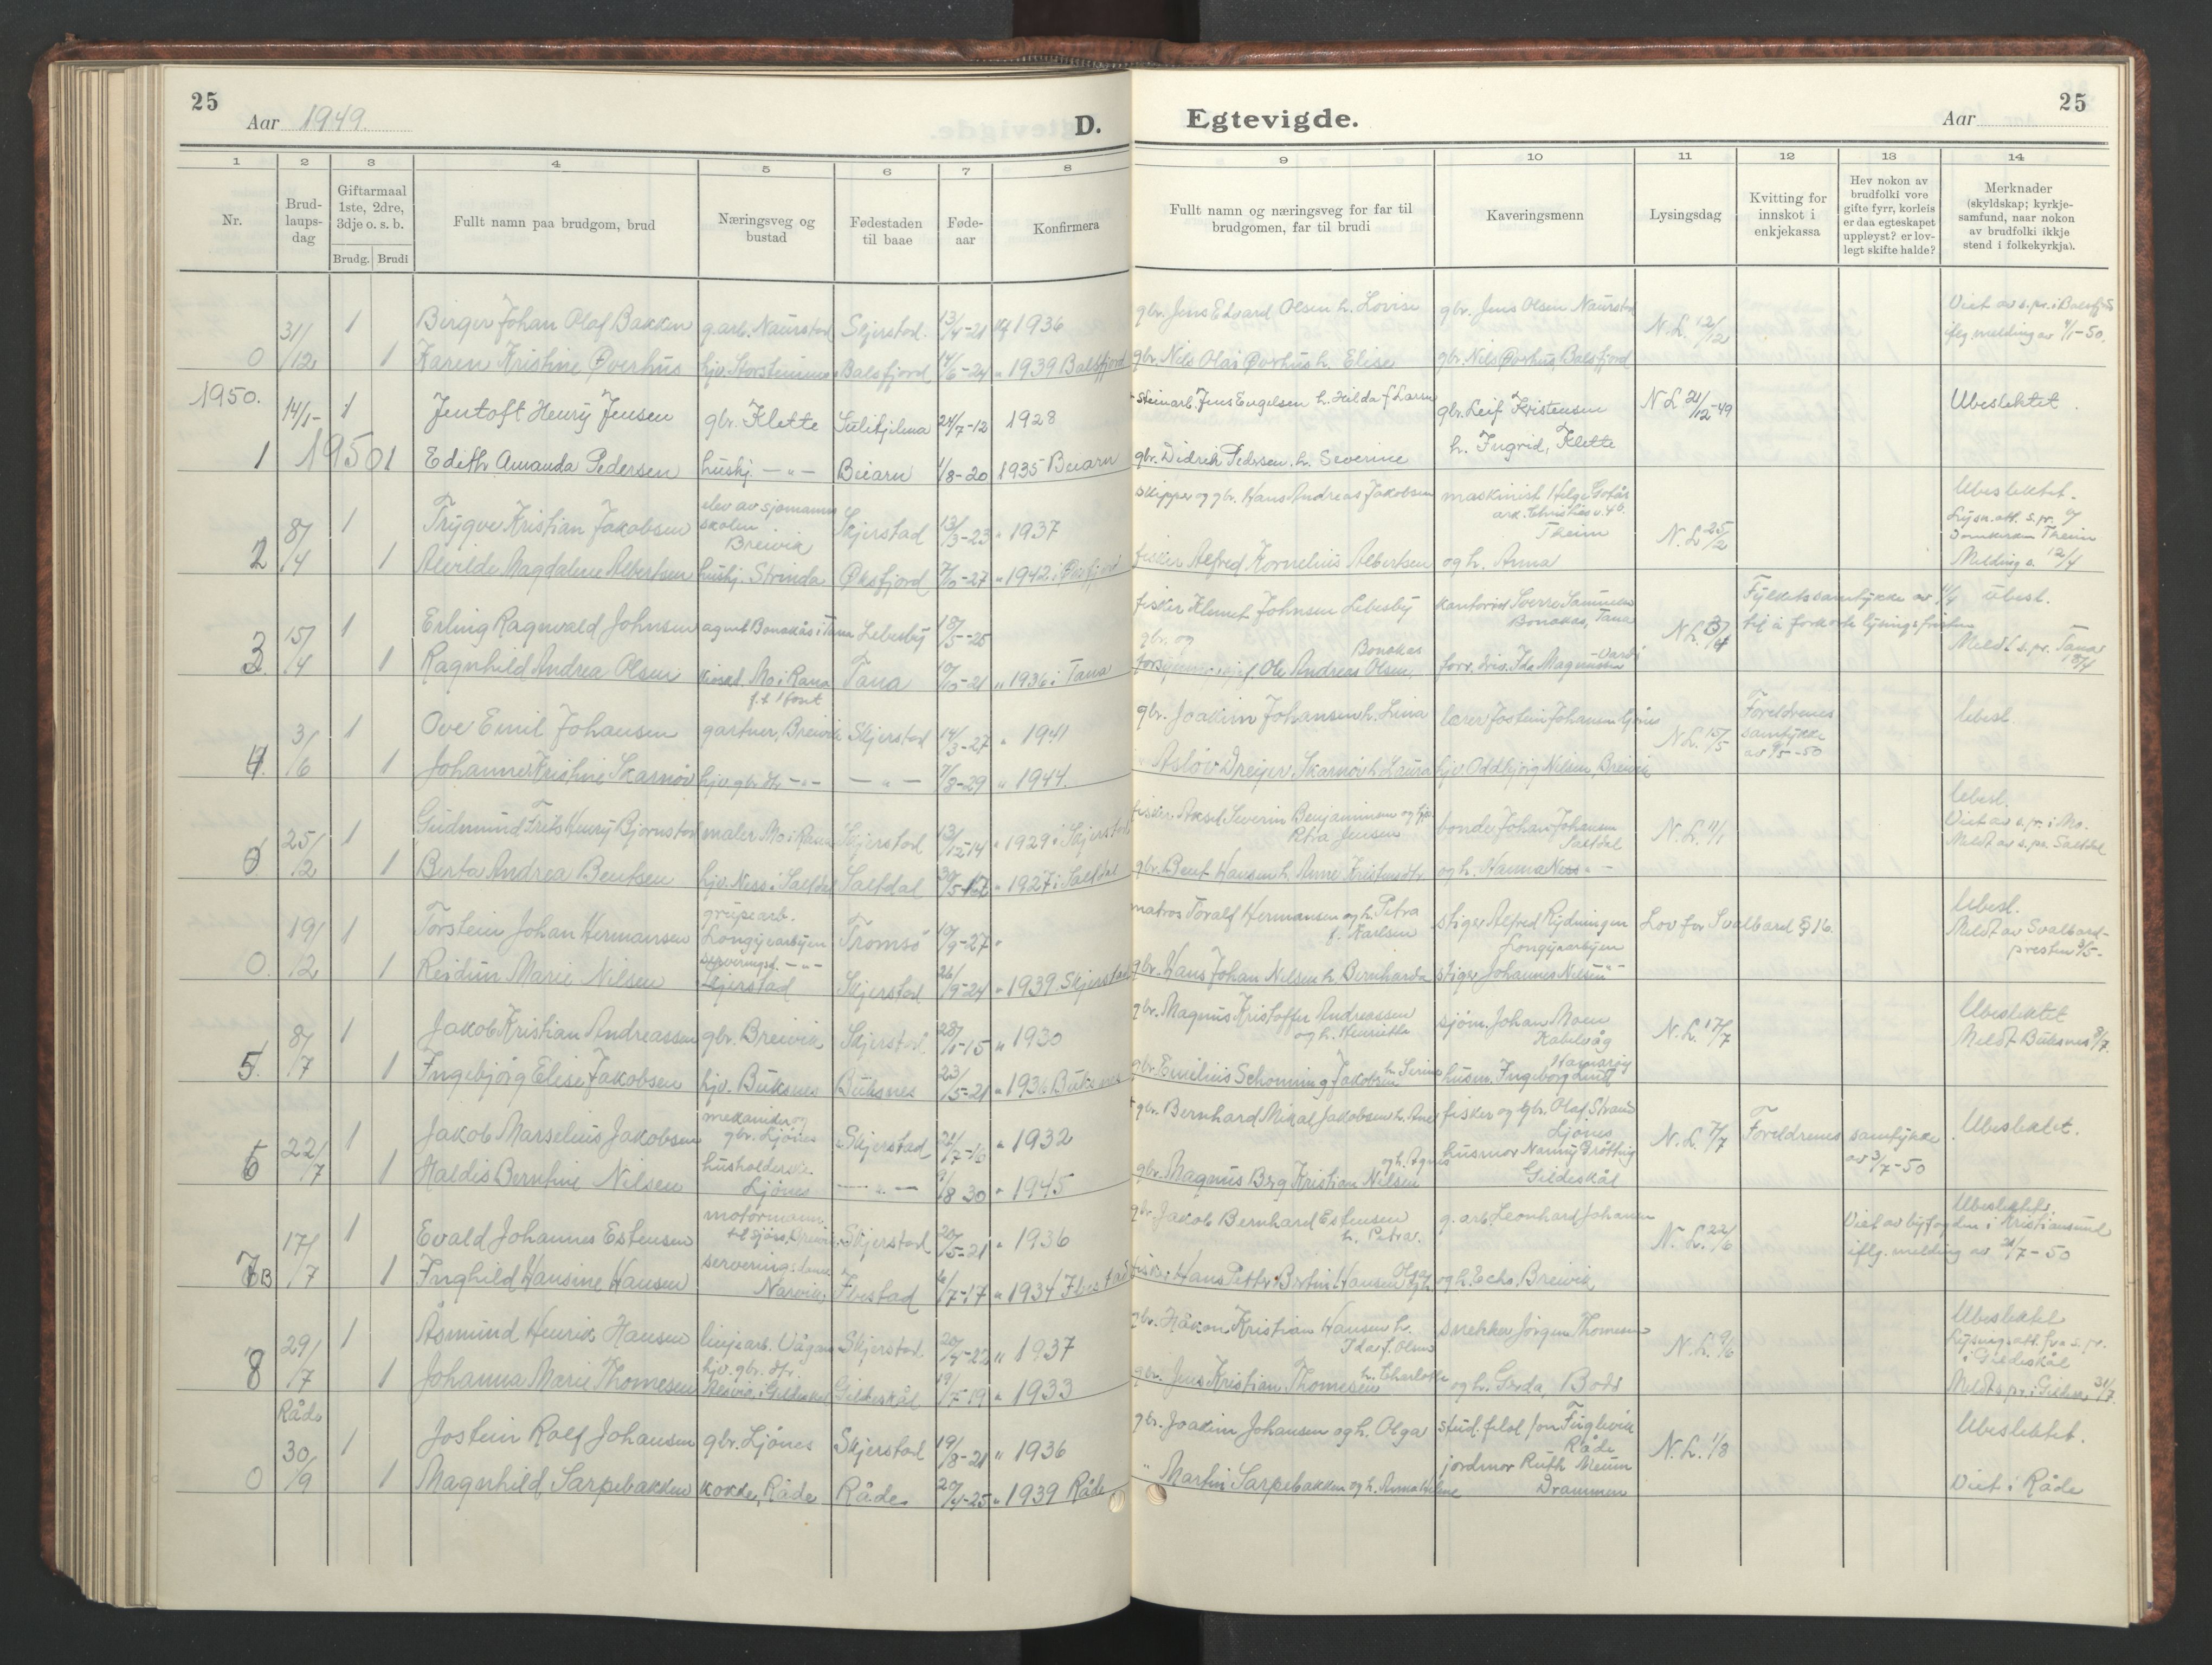 25
Aar 1949.
D.
Egtevigde.
Aar
25
1 2 3 4 5 6 7 8 9 10 11 12 13 14
Nr.
Brud-
laups-
dag
Giftarmaal
1ste, 2dre,
3dje o. s. b.
Brudg. Brudi
Fullt namn paa brudgom, brud
Næringsveg og
bustad
Fødestaden
til baae
Føde-
aar
Konfirmera
Fullt namn og næringsveg for far til
brudgomen, far til brudi
Kaveringsmenn
Lysingsdag
Kvitting for
innskot i
enkjekassa
Hev nokon av
brudfolki vore
gifte fyrr, korleis
er daa egteskapet
uppløyst? er lov-
legt skifte halde?
Merknader
(skyldskap; kyrkje-
samfund, naar nokon
av brudfolki ikkje
stend i folkekyrkja).
31/12 1 Birger Johan Olaf Bakken garb. Naurstad Skjerstad. 13/4-21 kf 1936 gbr. Jens Edvard Olsen h. Lovise gbr. Jens Olsen Naurstad N.L. 12/12 Viet av s.pr. i Balsfjord
iflg. melding av 4/1-50.
0 1 Karen Kristine Øverhus hjv. Storsteinnes Balsfjord 14/6-24 " 1939 Balsfjord gbr. Nils Olai Øvrhus h. Elise gbr. Nils Øvrhus, Balsfjord
1950. 14/1- 1 Jentoft Henry Jensen gbr. Klette Sulitjelma 24/7-12 1928 steinarb. Jens Engelsen h. Hilda f Larsen gbr. Leif Kristensen N L 21/12-49 Ubeslektet.
1 1950 1 Edith Amanda Pedersen hushj. -"- Beiarn 1/8-20 1935 Beiarn gbr. Didrik Pedersen. h. Severine h. Ingrid, Klette
2 8/4 1 Trygve Kristian Jakobsen elev av sjømanns
skolen
Breivik Skjerstad 13/3-23 " 1937 skipper og gbr. Hans Andreas Jakobsen maskinist Helge
Theim N.L. 25/2 Ubeslektet.
Lysn.att. s.pr.
Theim
1 Alvilde Magdalene Albertsen hushj. Strinda Øksfjord " 1942 i Øksfjord fisker Alfred Kornelius Albertsen og h. Anna Melding s. 12/4
3 15/4 1 Erling Ragnvald Johnsen agent Bonakås i Tana Lebesby 18/5-25 fisker Klemet Johnsen Lebesby kontorist Sverre Samuelsen
Bonakas, Tana Fylketssamtykke av 11/4
til å forkorte lysingsfristen Ubesl.
1 Ragnhild Andrea Olsen kiosk, Mo i Rana
f.t. Ifoset Tana 10/10-21 " 1936 i Tana gbr. og
Bonakas
f. Ole Andreas Olsen, forr. dris. Ida Magnussen Vardø Meldt s.pr. Tana
18/4
4. 3/6 1 Ove Emil Johansen gartner, Breivik Skjerstad 14/3-27 " 1941 gbr. Joakim Johansen h. Lina lærer Jostein Johansen Ljønes N.L. 15/5 Foreldrenes
samtykke
av 9/5-50 Ubesl.
1 Johanne Kristine Skarnøv hjv. gbr. dtr -"- -"- 7/8-29 " 1944. " Asløv Dreyer Skarnøv h. Laura hjv Oddbjørg Nilsen, Breivik
0 25/2 1 Gudmund Frits Henry Bjørnstad maler Mo i Rana Skjerstad 13/12-14 " 1929 i Skjerstad fisker. Aksel Severin Benjaminsen og hjv.
Petra Jensen bonde Johan Johansen
Saltdal N.L. 11/1 Ubesl.
Viet av s.pr. i Mo.
Meldt av s.pr. Saltdal
1 Berta Andrea Bentsen hjv. Ness i Saltdal Saltdal 30/5-17 " 1927 i Saltdal gbr. Bent Hansen h. Anne Kristensdtr og h. Hanna Ness -"-
0. 19/12 1 Torstein Johan Hermansen gruvearb.
Longyearbyen Tromsø 10/9-27 " matros Toralf Hermansen og h. Petra
f. Karlsen stiger Alfred Rydningen
Longyearbyen Lov for Svalbard § 16. Ubesl.
Meldt av Svalbard-
presten 3/5-
1 Reidun Marie Nilsen serveringsd. -"-
Skjerstad Skjerstad 26/9-24 " 1939. Skjerstad gbr. Hans Johan Nilsen h. Bernharda stiger Johannes Nilsen -"-
5. 8/7 1 Jakob Kristian Andreassen gbr. Breivik Skjerstad -15 " 1930 gbr. Magnus Kristoffer Andreassen
og h. Henriette sjøm. Johan Moen
Kabelvåg N.L. 17/7 Ubeslektet
Meldt Buksnes 8/7.
1 Ingebjørg Elise Jakobsen hjv. Buksnes Buksnes 23/5-21 " 1936 Buksnes gbr. Emilius Schønning Jakobsen h. Serine husm. Ingeborg Lind Hamarøy
6 22/7 1 Jakob Marselius Jakobsen mekaniker og
gbr. Ljønes Skjerstad 21/7-16 " 1932 gbr. Bernhard Mikal Jakobsen h. Ane fisker og gbr. Olaf Strand
Ljønes N.L. 7/7 Foreldrenes samtykke
av 3/7-50 Ubeslektet.
1 Haldis Berntine Nilsen husholderske
Ljønes -"- 9/8 30 " 1945 gbr. Magnus Berg Kristian Nilsen og h. Agnes husmor Nanny Brøtting
Gildeskål
7B 17/7 1 Evald Johannes Estensen motormann
til sjøss, Breivik Skjerstad 20/5-21 " 1936 gbr. Jakob Bernhard Estensen
h. Petra. g. arb. Leonhard Johansen N.L. 22/6 Ubeslektet.
Viet av byfogden i Kristiansund
iflg. melding av 21/7-50
1 Inghild Hansine Hansen serveringsdame
Narvik. Ibestad 6/7-17 " 1934 Ibestad fisker Hans Petter Bertin Hansen og h. Olga og h. Echo, Breivik
8 29/7 1 Åsmund Henrik Hansen linjearb. Vågan Skjerstad. 20/4-22 " 1937 gbr. Håkon Kristian Hansen h.
Ida f. Olsen snekker Jørgen Thomesen N.L. 9/6 Ubeslektet
Lysingsatt. fra s.pr.
i Gildeskål
1 Johanna Marie Thomesen hjv. gbr. dtr.
i Gildeskål Gildeskål 19/7-19 " 1933 gbr. Jens Kristian Thomesen h. Charlotte og h. Gerda, Bodø Meldt s.pr. i Gildesk. 31/7.
Råde
30/9 1 Jostein Rolf Johansen gbr. Ljønes Skjerstad 19/8-21 " 1936 gbr. Joakim Johansen og h. Olga stud. filol Jon Fuglevik
Råde N.L. 1/8 Ubeslektet.
0 1 Magnhild Sarpebakken kokke, Råde Råde 20/4-25 " 1939 Råde " Martin Sarpebakken og h. Anna Helene jordmor Ruth Meum
Drammen Viet i Råde